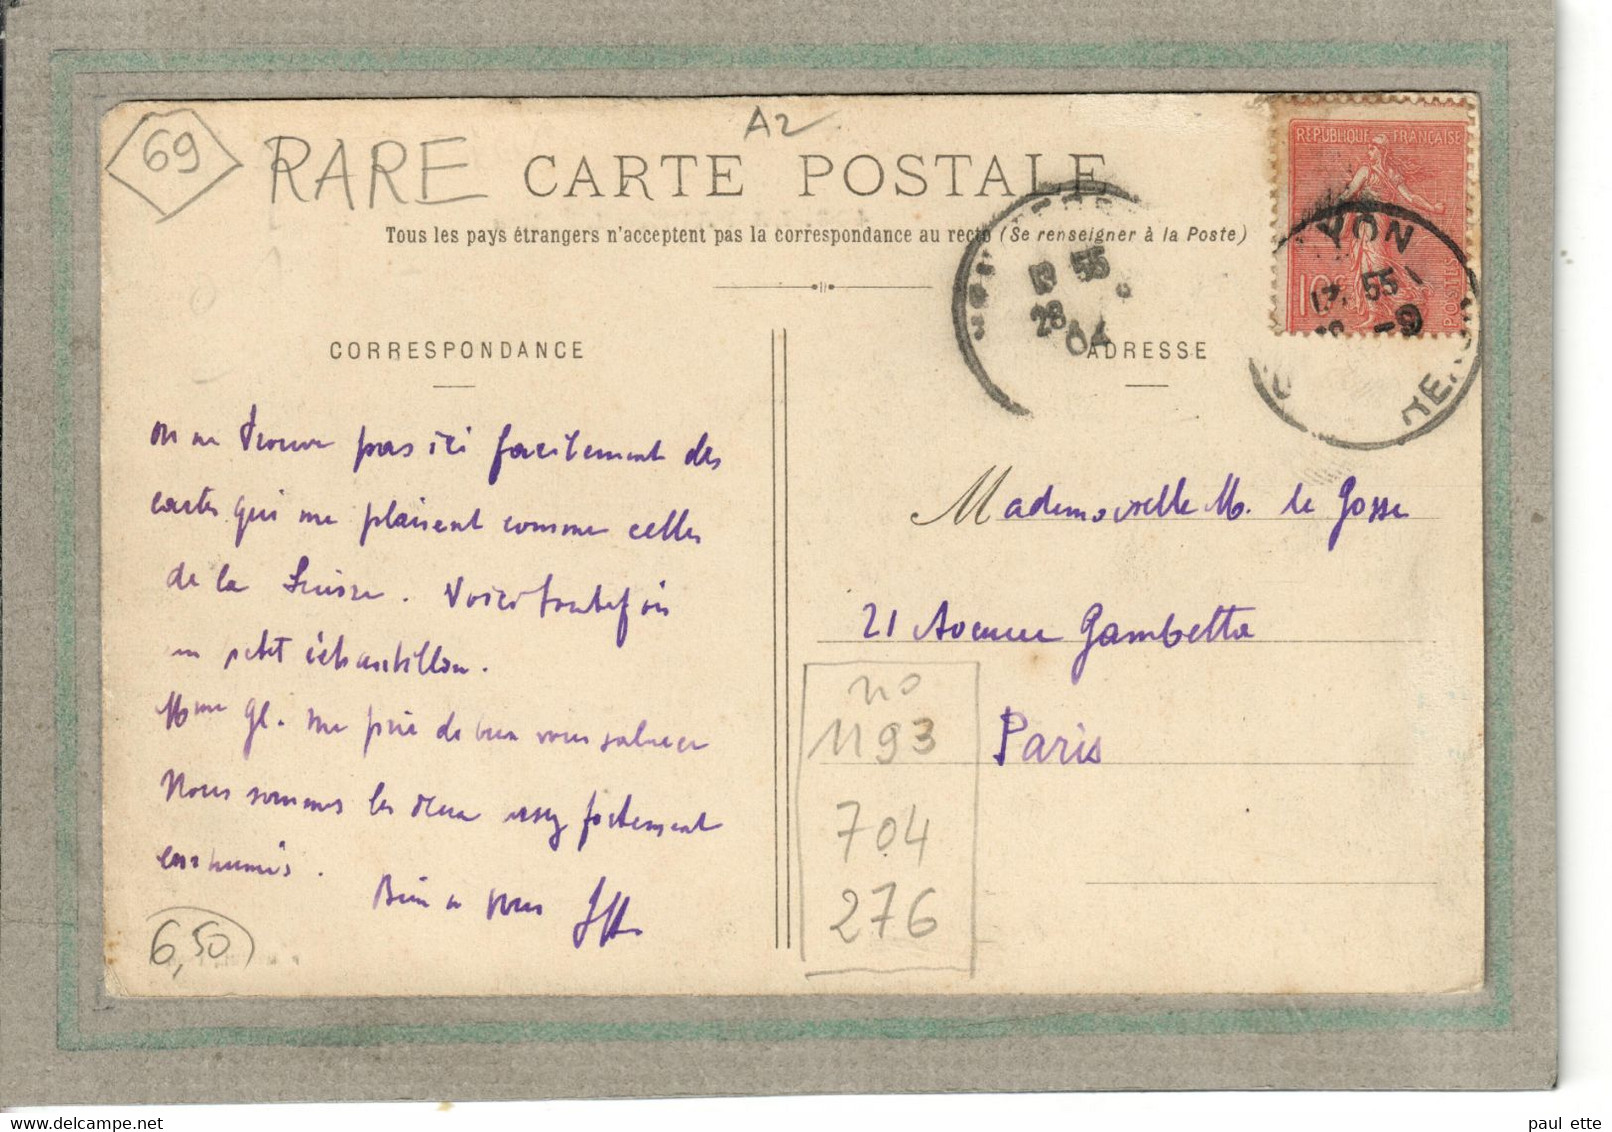 69
RARE
A2
CARTE POSTALE
Tous les pays étrangers n'acceptent pas la correspondance au recto (Se renseigner à la Poste)
RÉPUBLIQUE FRANÇAISE
10c
POSTES
55
28
04
55
CORRESPONDANCE
ADRESSE
on ne trouve pas ici facilement des
cartes qui me plaisent comme celles
de la Suisse. Voici toutefois
un petit échantillon.
Mme Gl. me prie de bien vous saluer
Nous sommes les deux assez fortement
enrhumés.
Bien à vous
6,50
Mademoiselle M. le Gosse
21 Avenue Gambetta
Paris
no
1193
704
276
paul ette